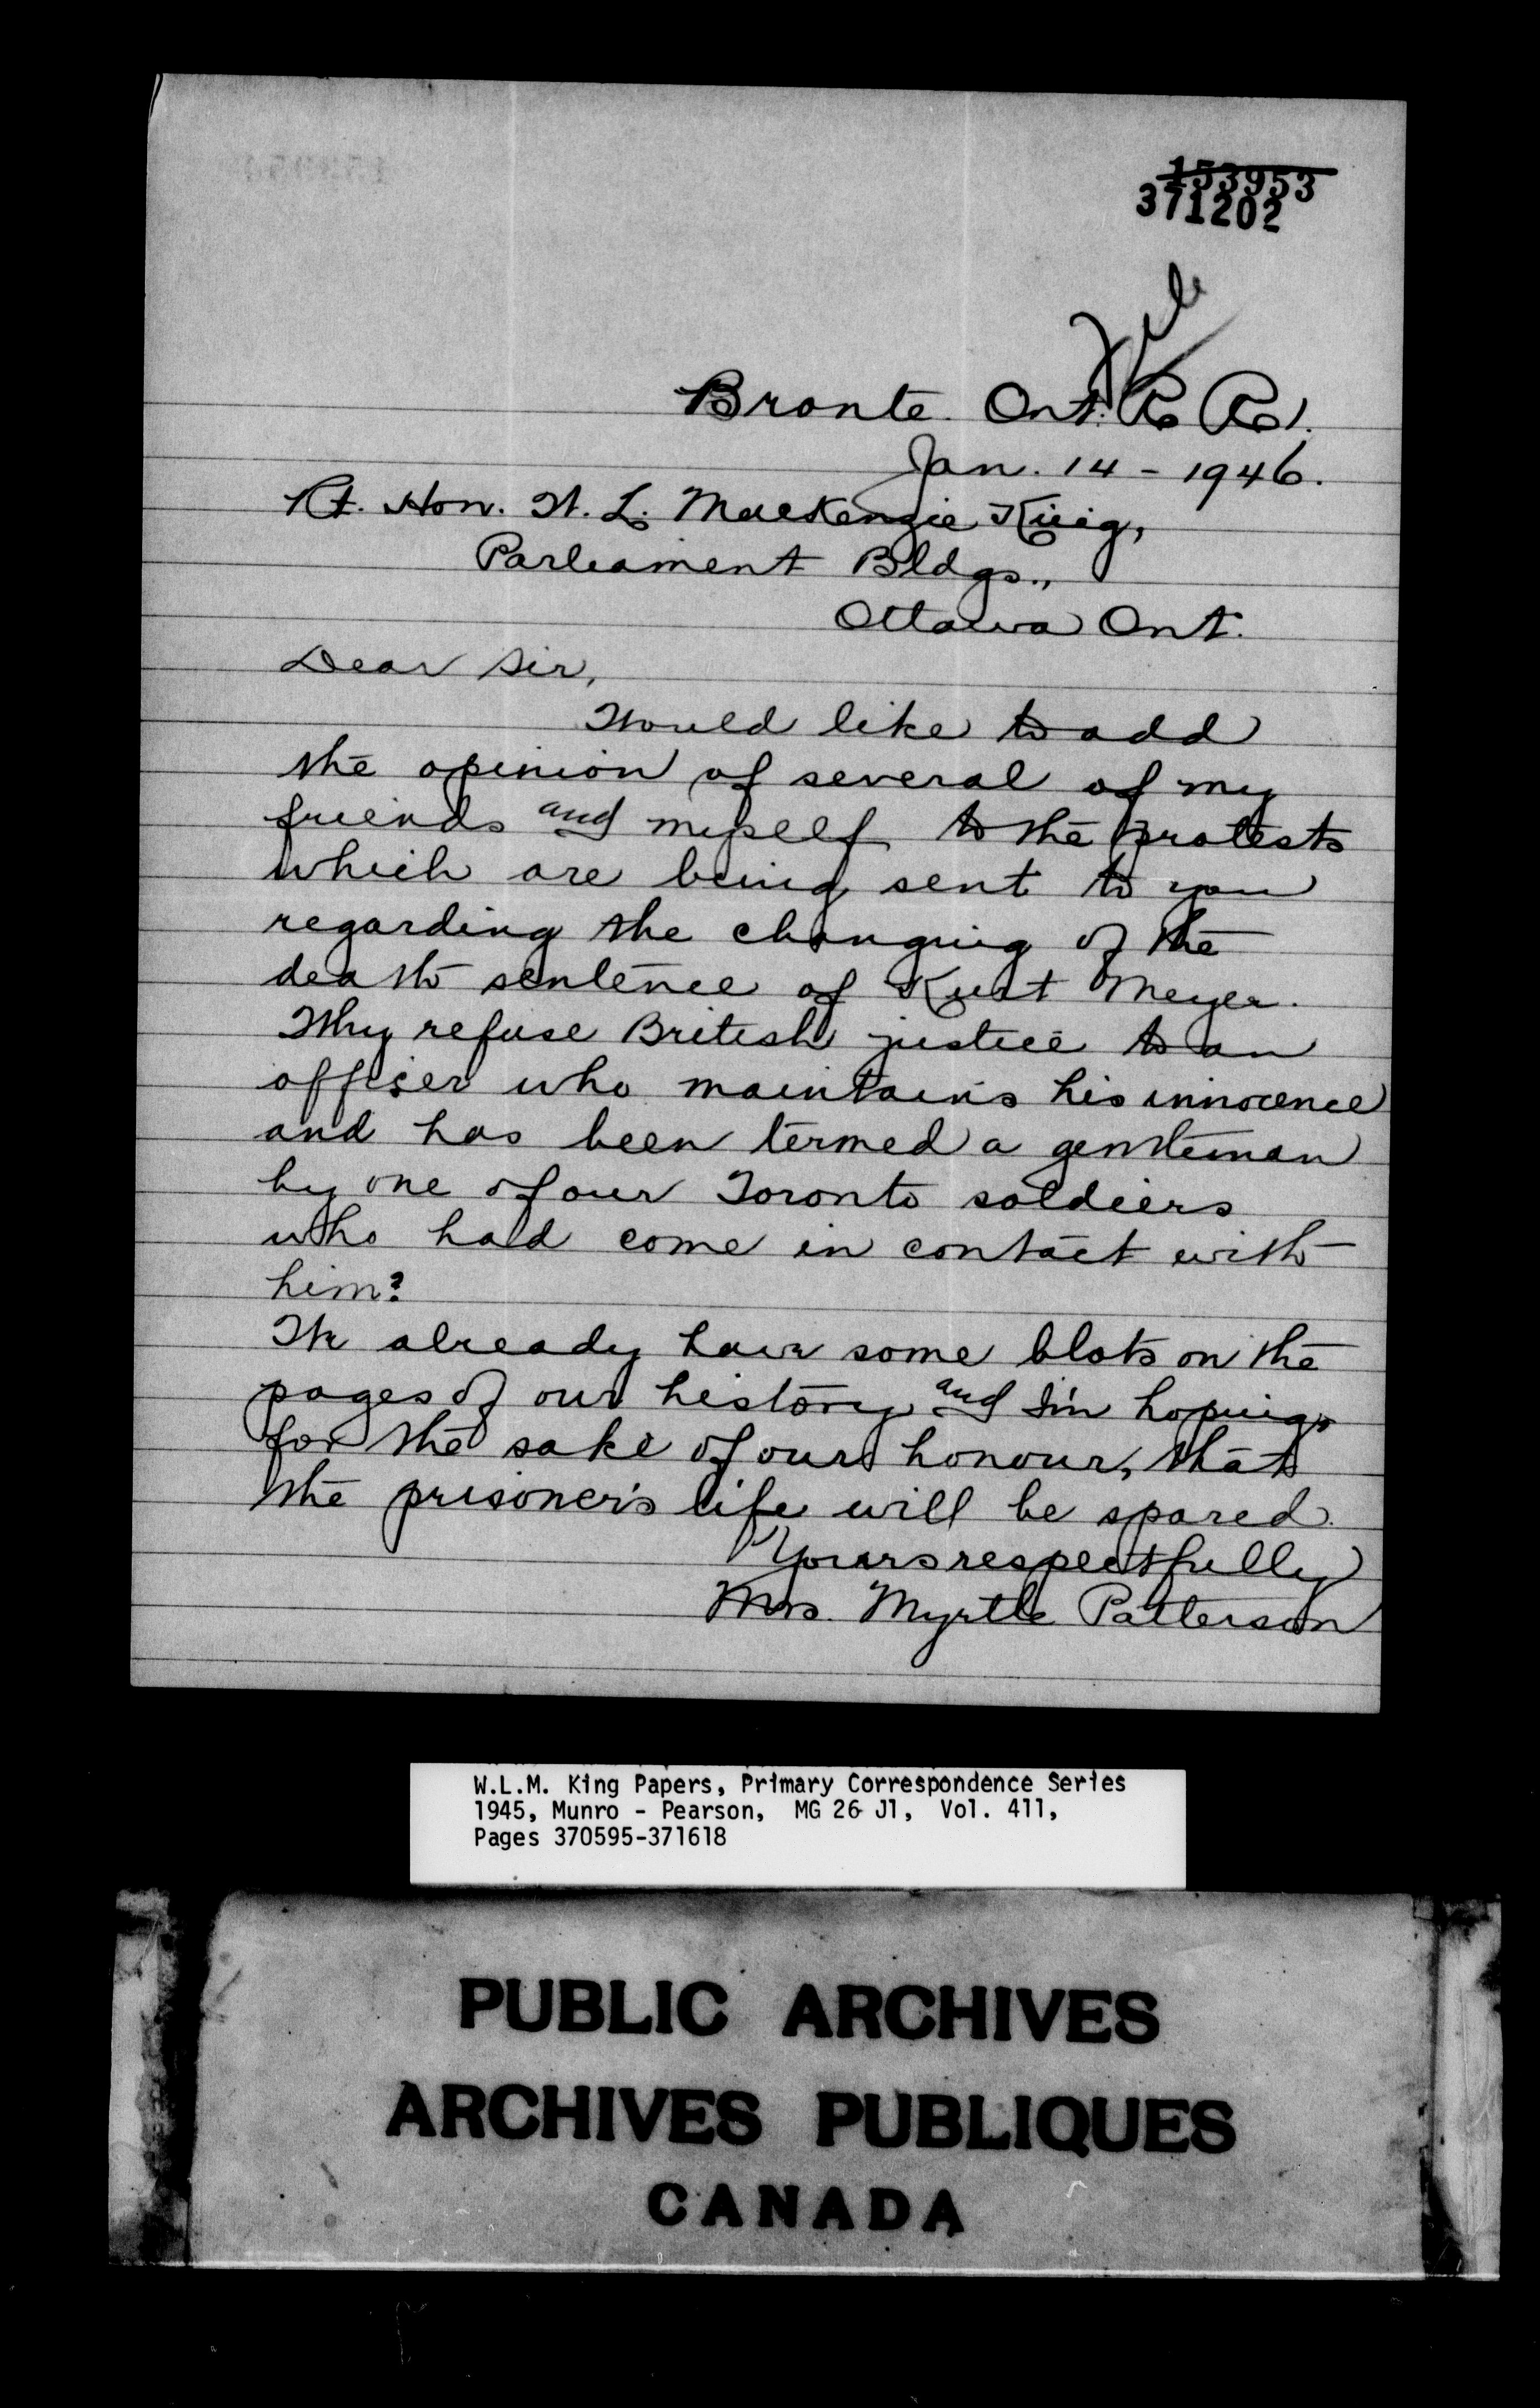 153953
371202
File
Bronte. Ont. R R 1.
Jan. 14 - 1946.
Rt. Hon. W. L. MacKenzie King,
Parliament Bldgs.,
Ottawa Ont.
Dear Sir,
Would like to add
the opinion of several of my
friends and myself to the protests
which are being sent to you
regarding the changing of the
death sentence of Kurt Meyer.
Why refuse British justice to an
officer who maintains his innocence
and has been termed a gentleman
by one of our Toronto soldiers
who had come in contact with
him?
We already have some blots on the
pages of our history and I'm hoping,
for the sake of our honour, that
the prisoner's life will be spared.
Yours respectfully
Mrs. Myrtle Patterson
W.L.M. King Papers, Primary Correspondence Series
1945, Munro - Pearson, MG 26 J1, Vol. 411,
Pages 370595-371618
PUBLIC ARCHIVES
ARCHIVES PUBLIQUES
CANADA